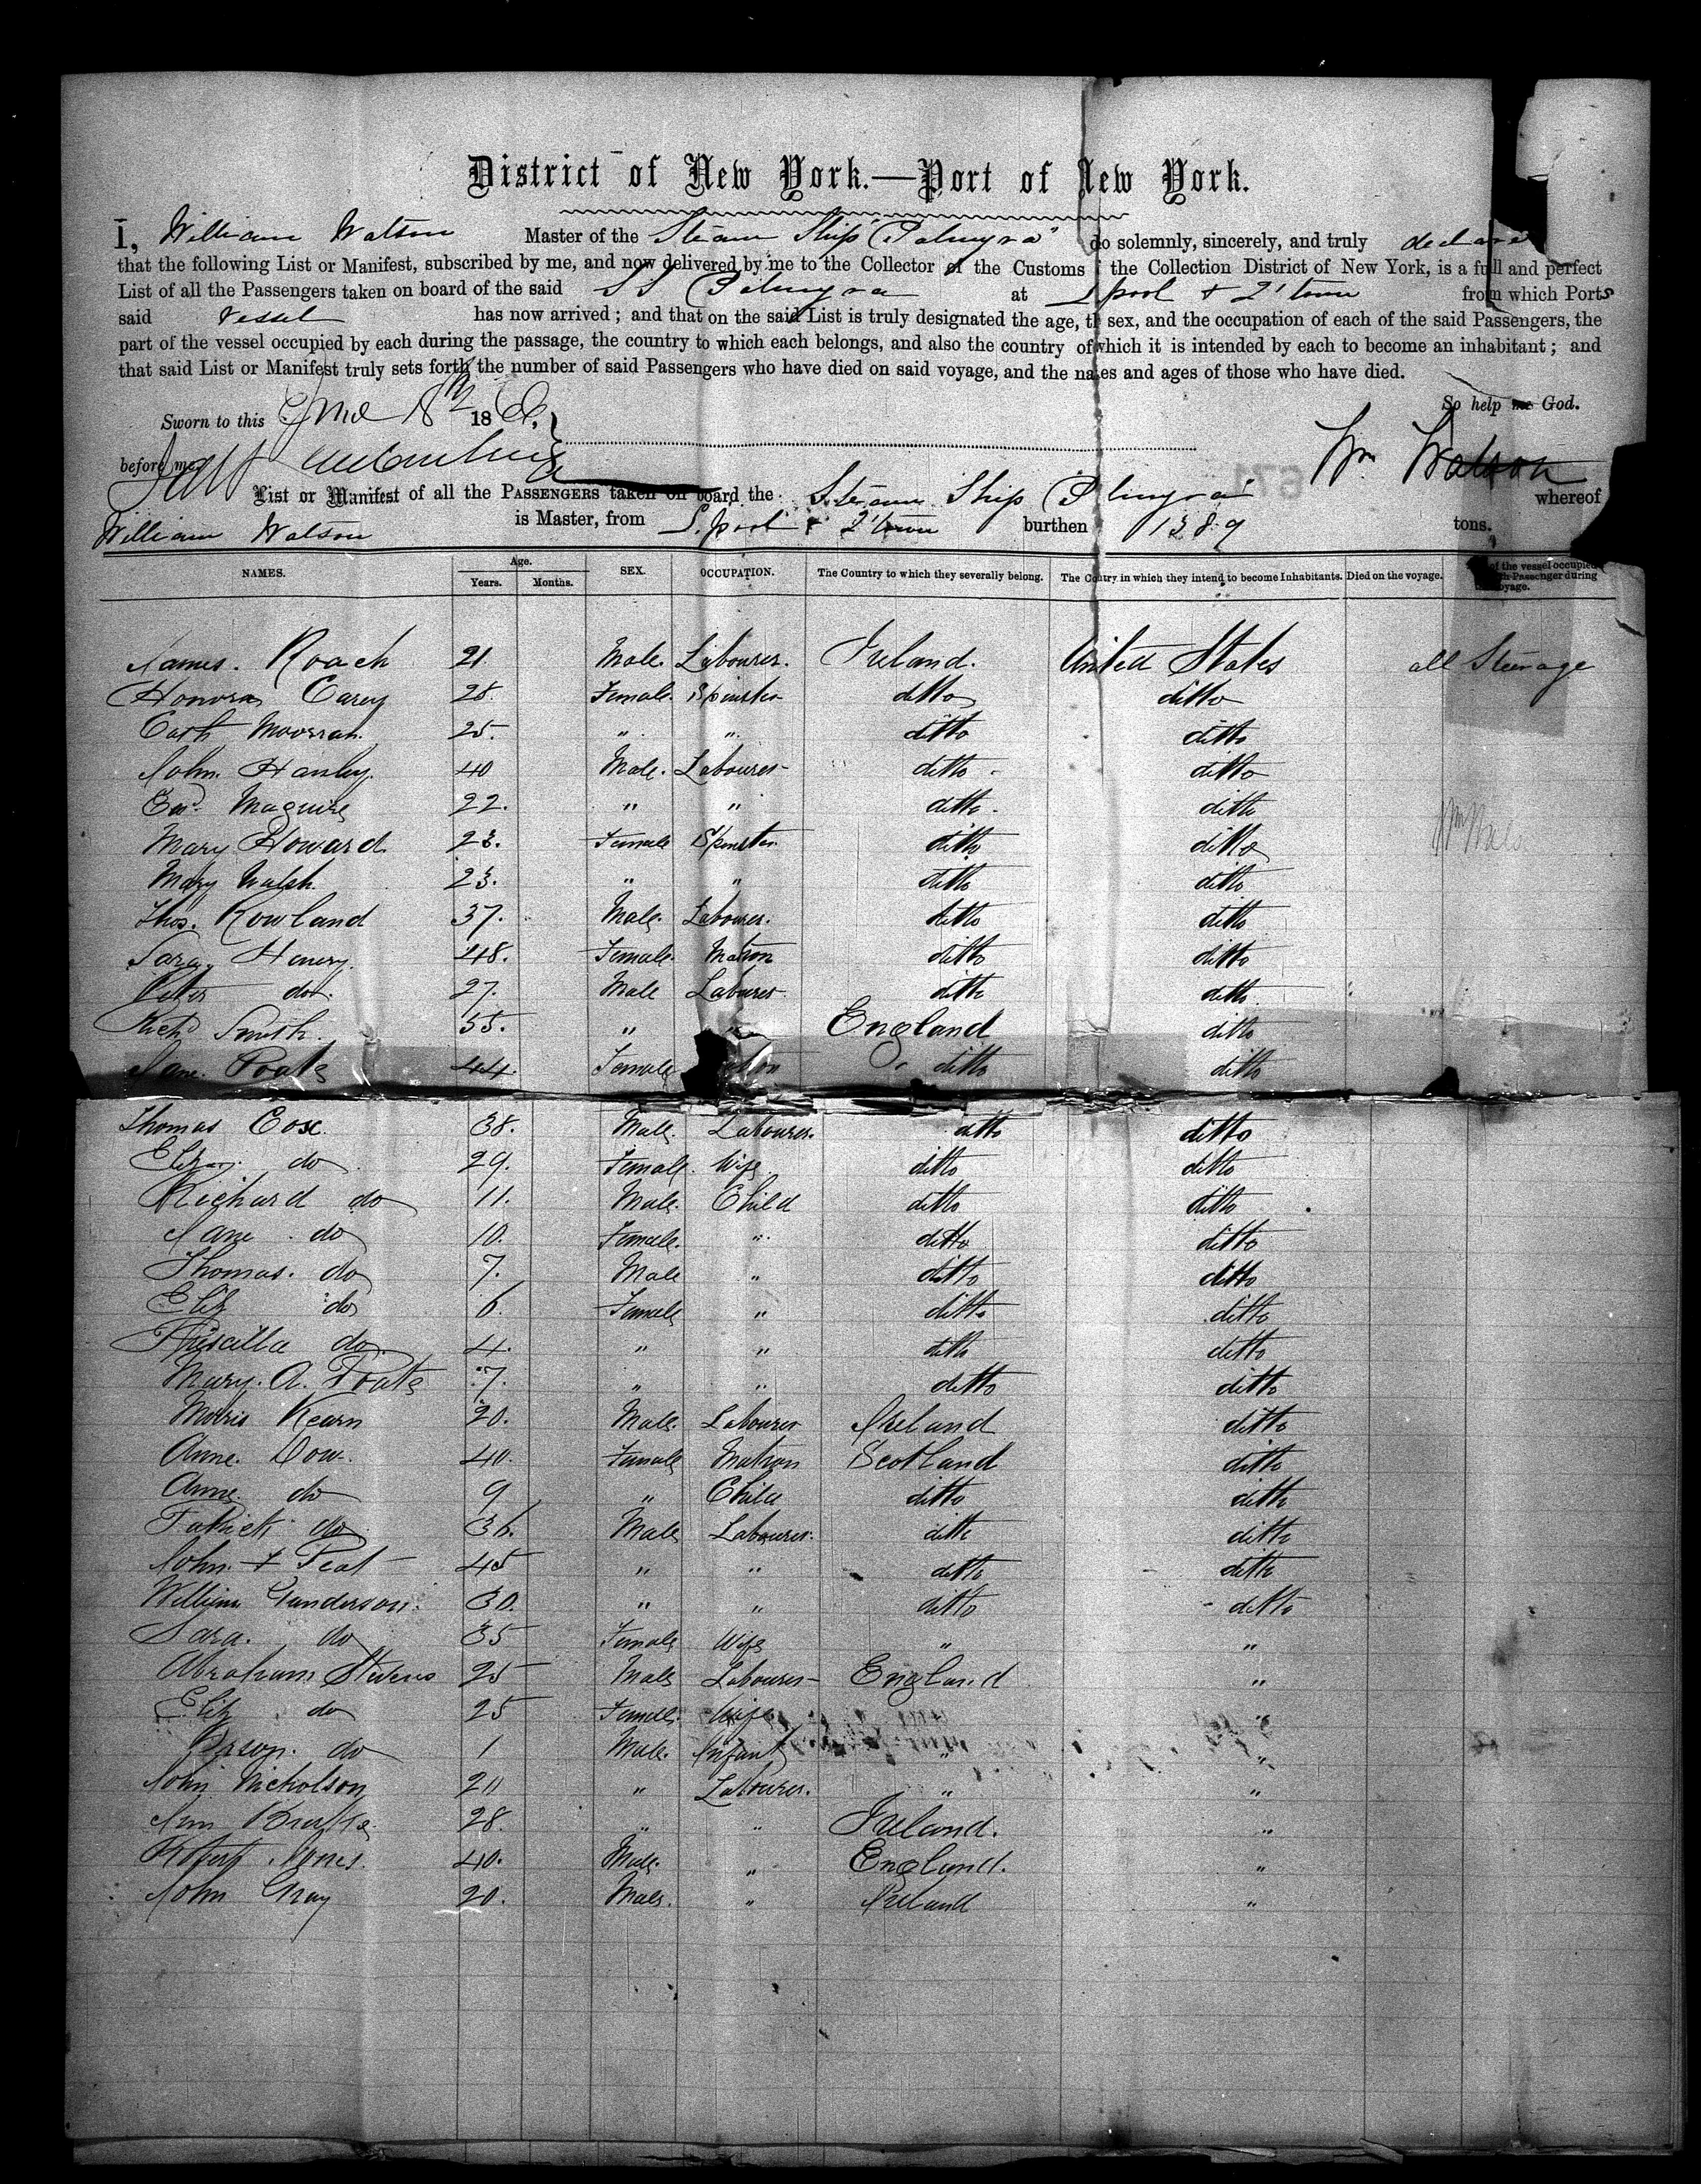 District of New York.—Port of New York.
I, William Watson Master of the Steam Ship "Palmyra" do solemnly, sincerely, and truly declare
that the following List or Manifest, subscribed by me, and now delivered by me to the Collector of the Customs the Collection District of New York, is a full and perfect
List of all the Passengers taken on board of the said SS Palmyra at L'pool & Q'town from which Ports
said Vessel has now arrived; and that on the said List is truly designated the age, the sex, and the occupation of each of the said Passengers, the
part of the vessel occupied by each during the passage, the country to which each belongs, and also the country of which it is intended by each to become an inhabitant; and
that said List or Manifest truly sets forth the number of said Passengers who have died on said voyage, and the names and ages of those who have died.
So help me God.
Sworn to this June 18
before me Wm Watson
List or Manifest of all the PASSENGERS taken on board the Steam Ship Palmyra whereof
William Watson is Master, from L.pool & Q'town burthen 1389 tons.
NAMES. Age. Years. Months. SEX. OCCUPATION. The Country to which they severally belong. The Country in which they intend to become Inhabitants. Died on the voyage. of the vessel occupied Passenger during voyage.
James. Roach 21 Male. Labourer. Ireland. United States all Steerage
Honora Carey 28. Female Spinster ditto ditto
Cath 25. " " ditto ditto
John. Hanley. 40 Male. Labourer ditto ditto
Maguire 22. " " ditto ditto
Mary Howard 23. Female Spinster ditto ditto
Mary Walsh 23. " " ditto ditto
Thos. Rowland 37. Male. Labourer. ditto ditto
Sara. Henery. 48. Female. Matron ditto ditto
Peter do. 27. Male Labourer ditto ditto
Richd Smith. 55. " " England ditto
Jane. Poats 44. Female ditto ditto
Thomas Cox 38. Male. Labourer. ditto ditto
Eliza. do 29. Female. Wife ditto ditto
Richard do 11. Male. Child ditto ditto
Jane do 10. Female. " ditto ditto
Thomas. do 7. Male " ditto ditto
Eliz do 6. Female " ditto ditto
Priscilla do 4. " " ditto ditto
Mary. A. Poats 7. " " ditto ditto
Morris Kearn 20. Male. Labourer Ireland ditto
Anne. Dow. 40. Female Matron Scotland ditto
Anne do 9 " Child ditto ditto
Patrick do 36. Male Labourer. ditto ditto
John. Peat 45 " " ditto ditto
William Gunderson. 30. " " ditto ditto
Sara. do 35 Female Wife " "
Abraham Stevens 25 Male Labourer England "
Eliz do 25 Female. Wife "
do 1 Male. Infant " "
John Nicholson 20 " Labourer. " "
28. " " Ireland. "
Robert Jones. 40. Male. " England. "
John Gray 20. Male. " Ireland "